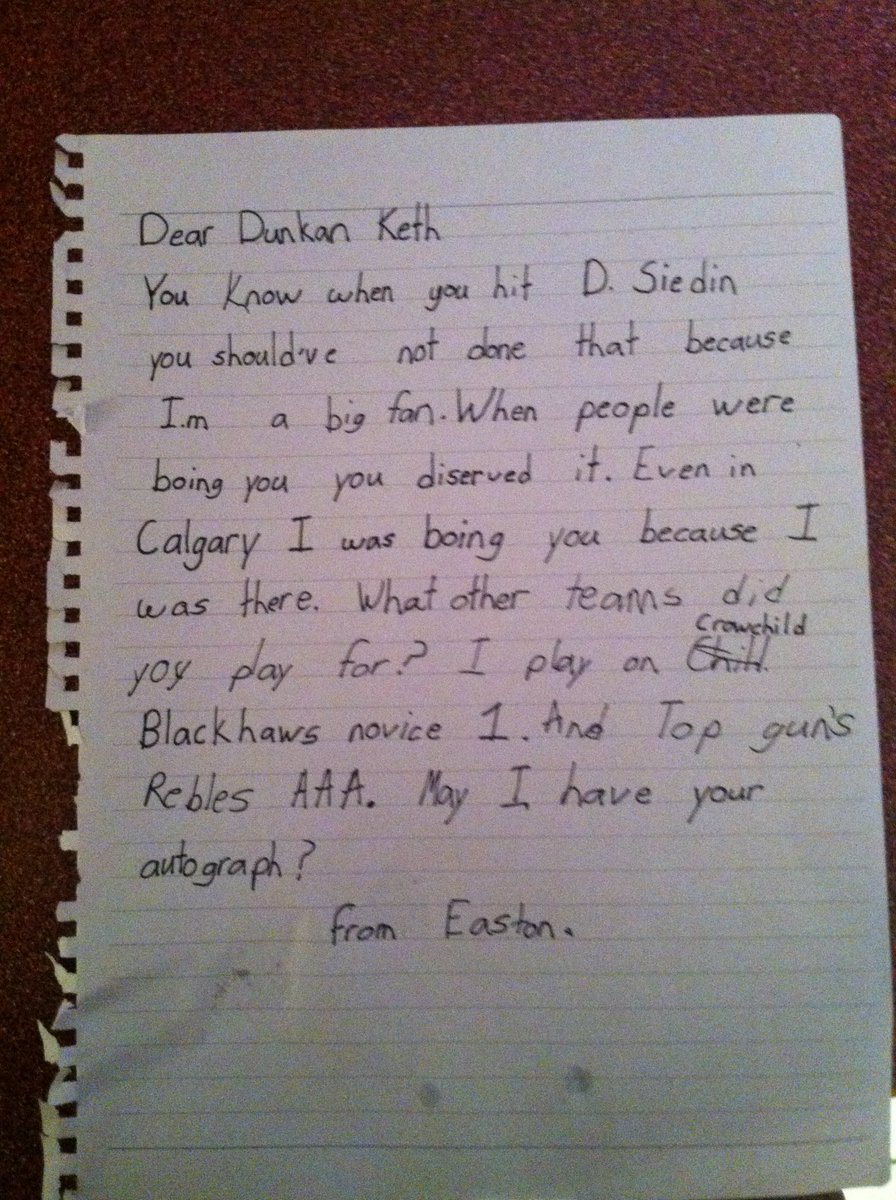 Dear Dunkan Keth
You Know when you hit D. Siedin
you should've not done that because
I.m a big fan. When people were
boing you you diserved it. Even in
Calgary I was boing you because I
was there. What other teams did
Crowchild
yoy play for? I play on Chill.
Blackhaws novice 1. And Top gun's
Rebles AAA. May I have your
autograph?
from Easton.